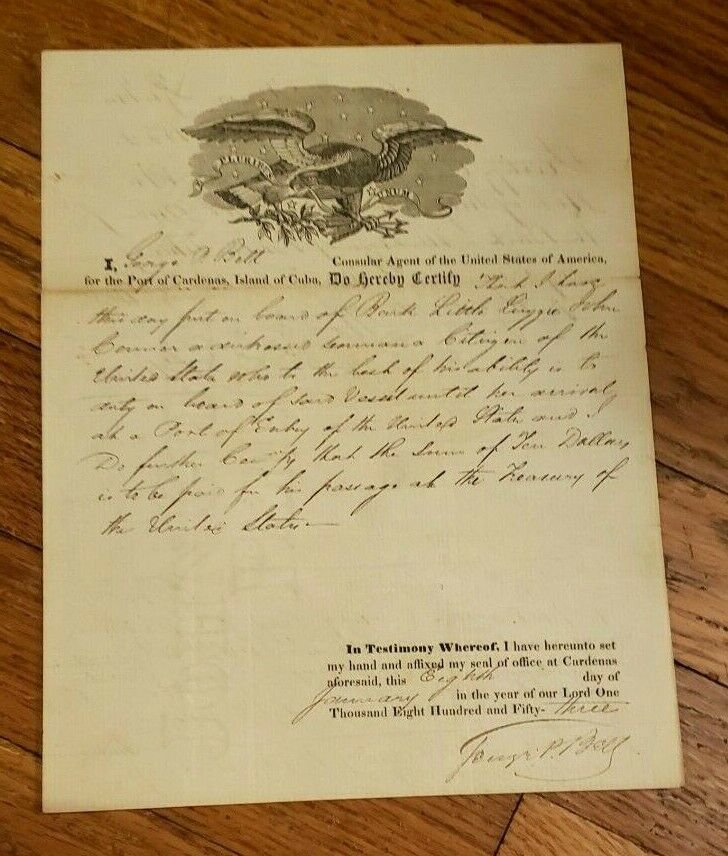 E PLURIBUS UNUM
I, George P Bell Consular Agent of the United States of America,
for the Port of Cardenas, Island of Cuba, Do Hereby Certify That I have
this day put on board of Bark Little Lizzie John
Connor a distressed seaman a Citizen of the
United States who to the best of his ability is to
duty on board of said Vessel until her arrival
at a Port of Entry of the United States and I
Do further Certify that the Sum of Ten Dollars
is to be paid for his passage at the Treasury of
the United States
In Testimony Whereof, I have hereunto set
my hand and affixed my seal of office at Cardenas
aforesaid, this Eighth day of
January in the year of our Lord One
Thousand Eight Hundred and Fifty- three
George P. Bell